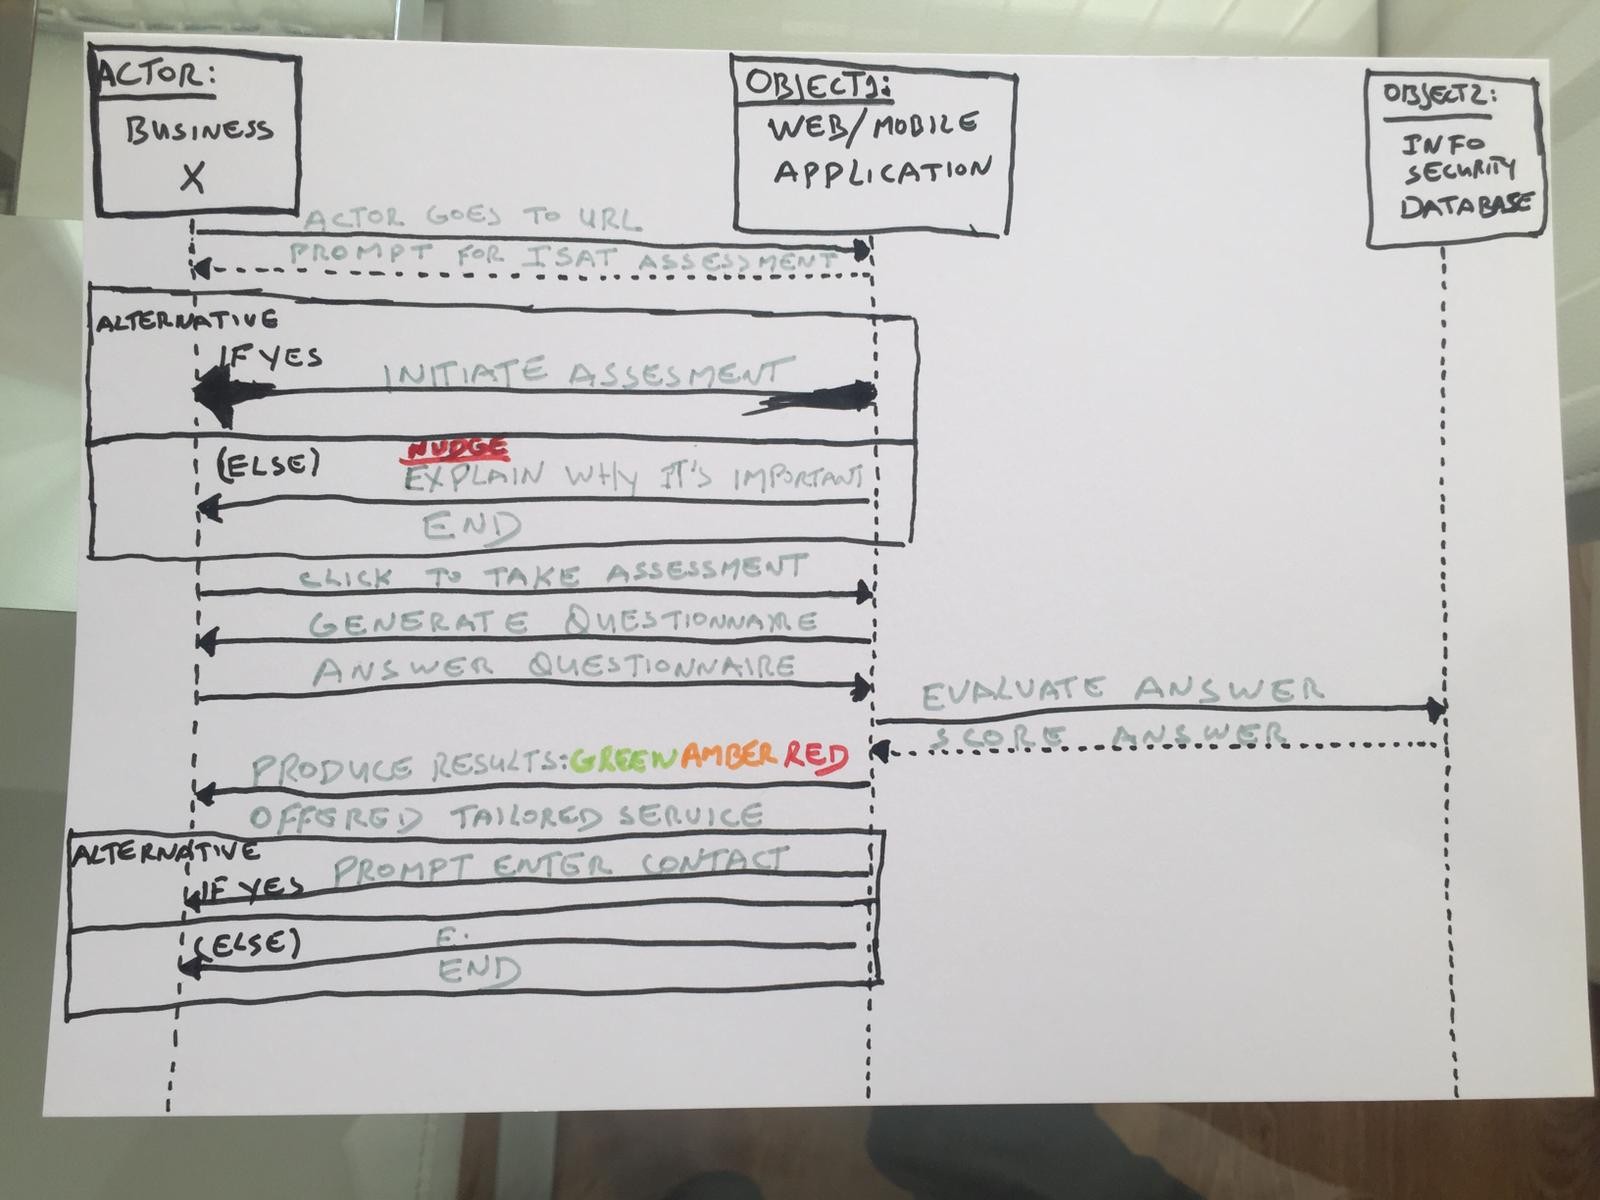 ACTOR:
BUSINESS
X
OBJECT1:
WEB/MOBILE
APPLICATION
OBJECT2:
INFO
SECURITY
DATABASE
ACTOR GOES TO URL
PROMPT FOR ISAT ASSESSMENT
ALTERNATIVE
IF YES
INITIATE ASSESMENT
(ELSE)
NUDGE
EXPLAIN WHY IT'S IMPORTANT
END
CLICK TO TAKE ASSESSMENT
GENERATE QUESTIONNAIRE
ANSWER QUESTIONNAIRE
EVALUATE ANSWER
SCORE ANSWER
PRODUCE RESULTS: GREEN AMBER RED
OFFERED TAILORED SERVICE
ALTERNATIVE
PROMPT ENTER CONTACT
IF YES
(ELSE)
E.
END